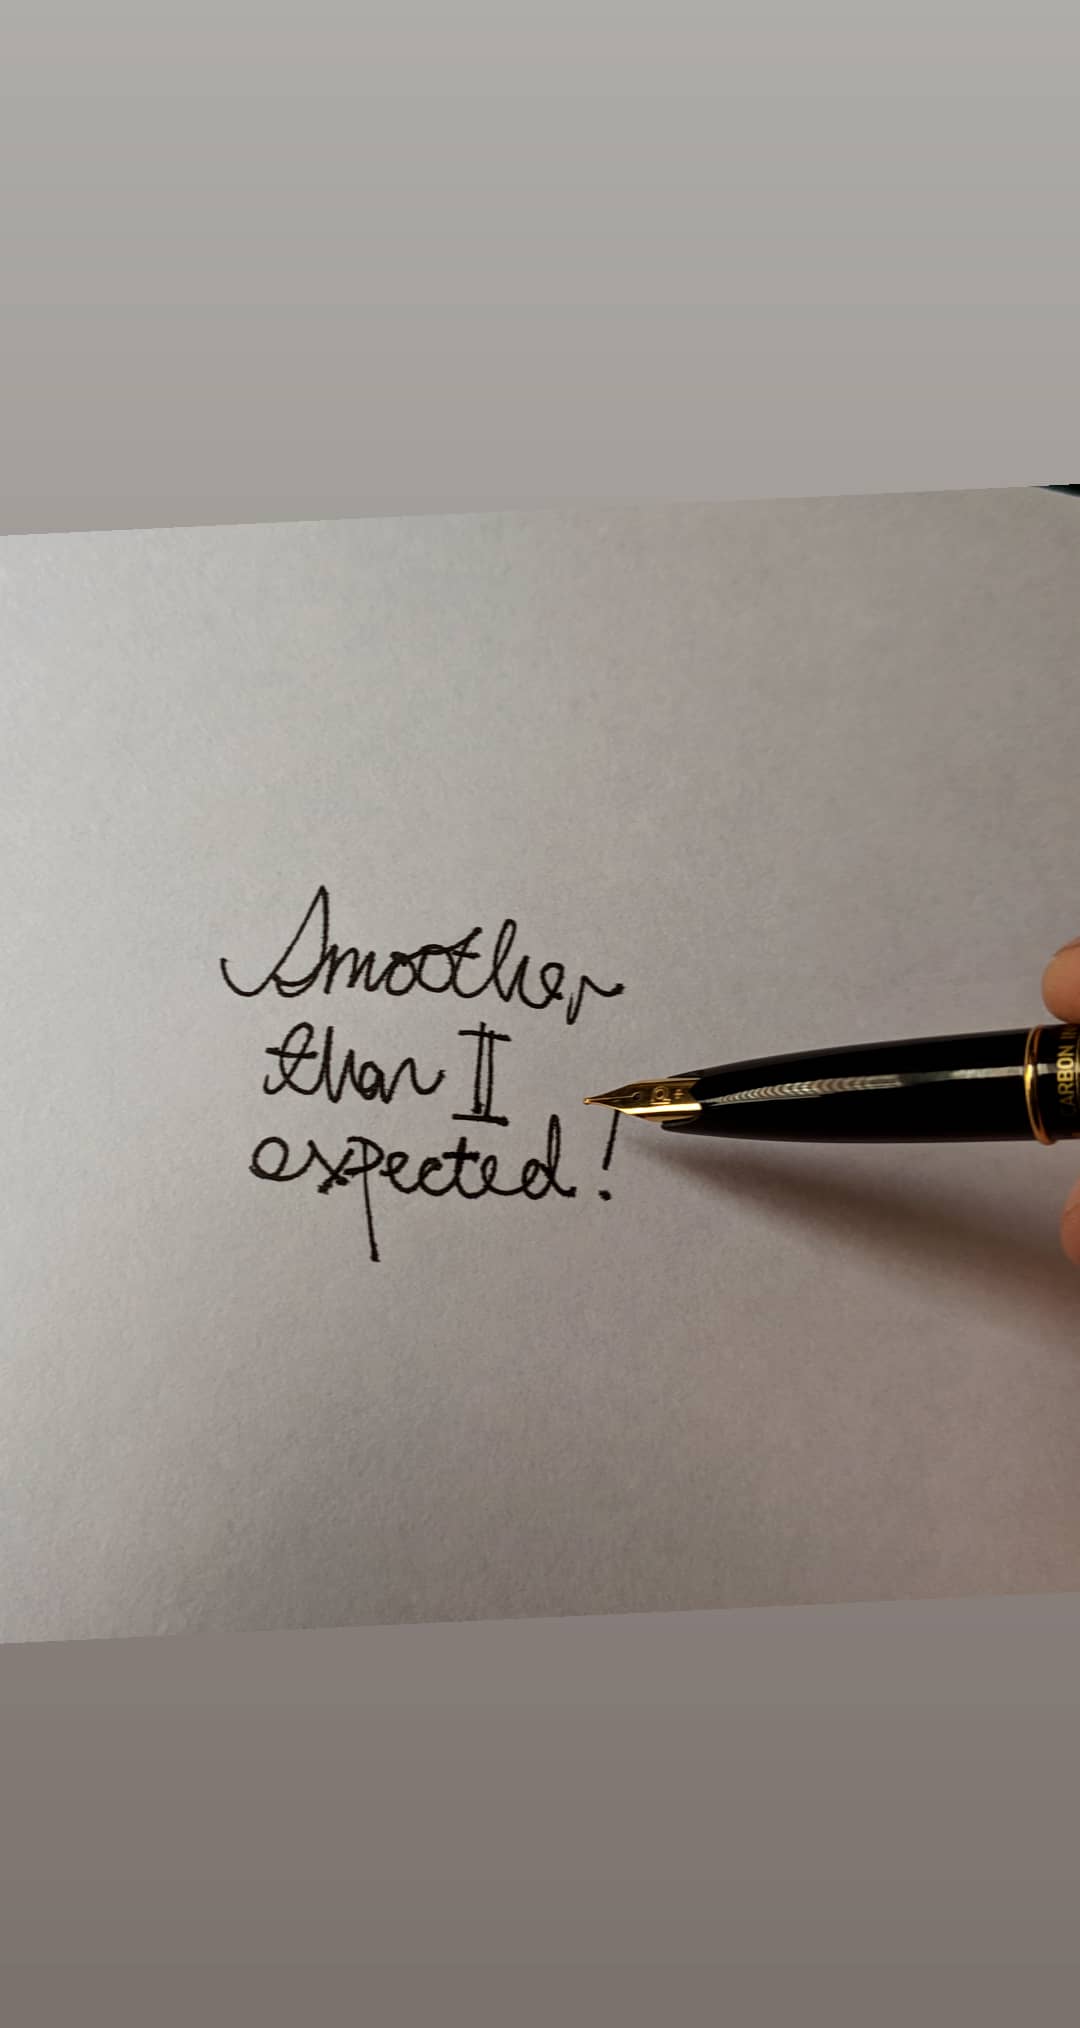 Smoother
than I
expected!
CARBON IN